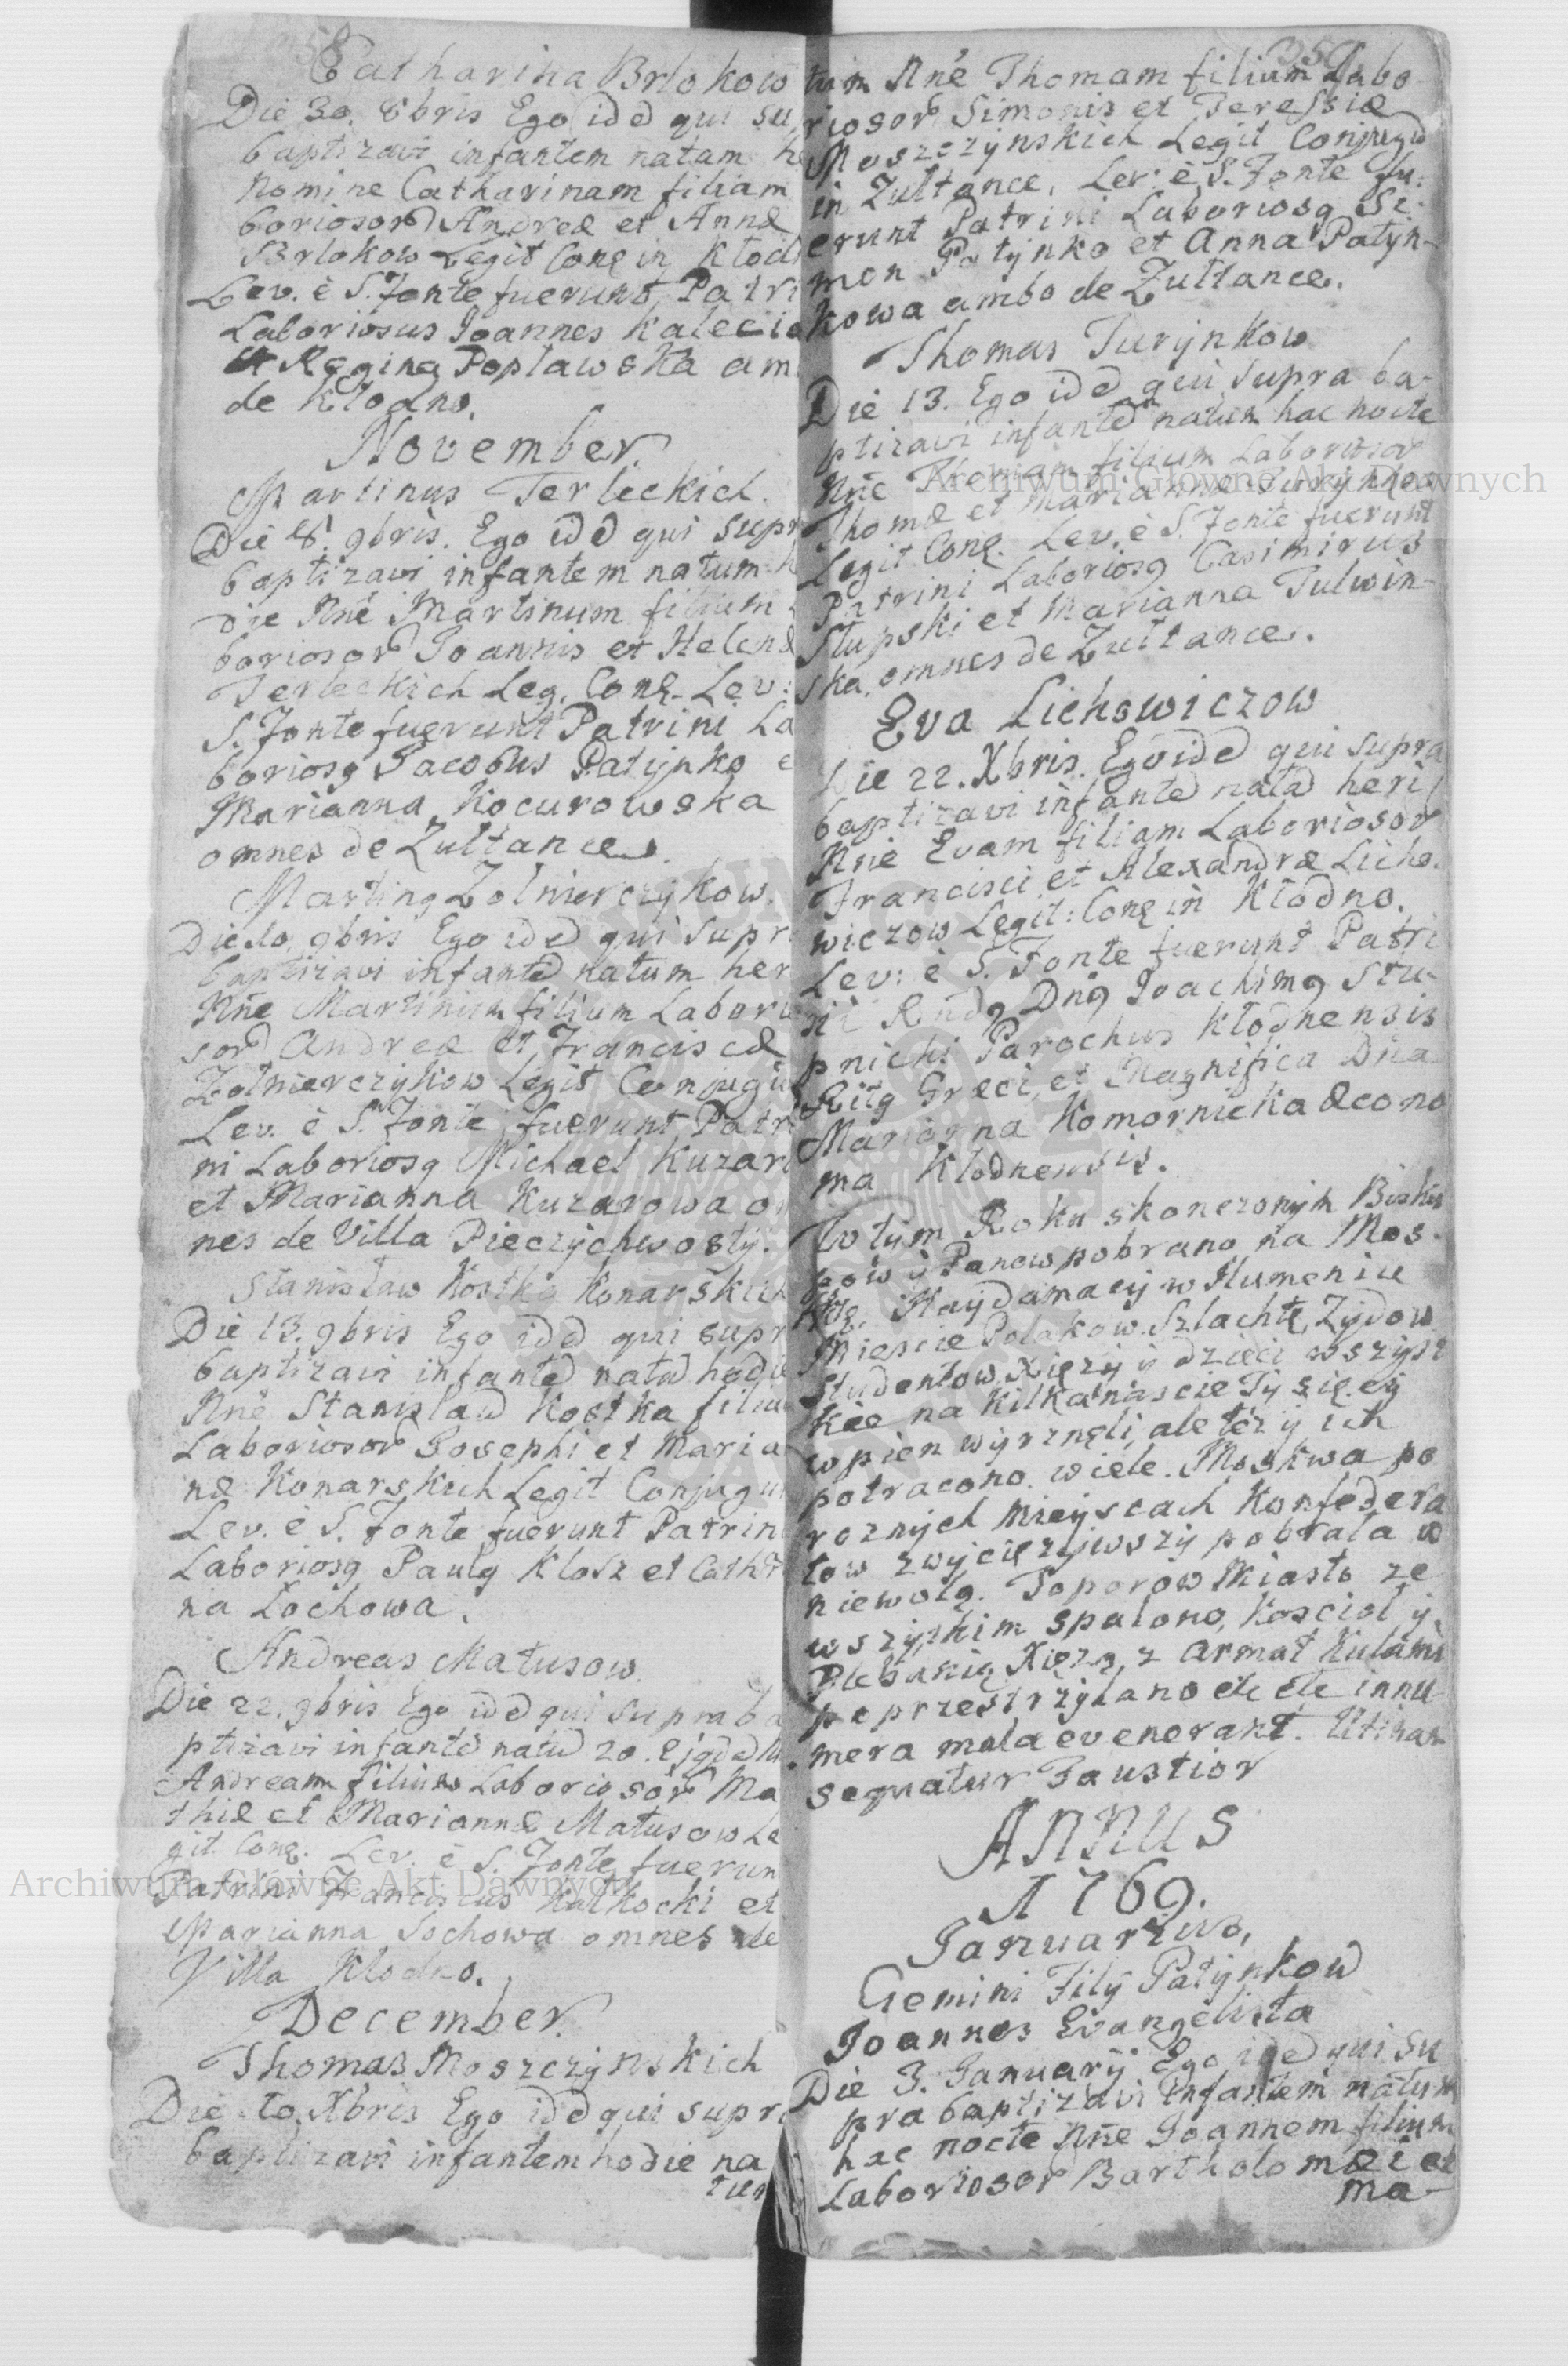 Catharina Brlokow
Die 30. 8bris Ego idē qui su
baptizavi infantem natam h
Nomine Catharinam filiam
boriosor Andreæ et Annæ
Brlokow Legit Conę in Kłod
Lev. è S. Fonte fuerunt Patri
Laboriosus Joannes Kalecio
et Regina Poplawska am
de Kłodno.
November.
Martinus Terleckich.
Die 8. 9bris. Ego idē qui supr
baptizavi infantem natum h
die Nñe Martinum filium
boriosor Joannis et Helenæ
Terleckich Leg. Conę. Lev:
S. Fonte fuerunt Patrini La
boriosg Jacobus Patynko e
Marianna Kocurowska
omnes de Zułtance.
Marting Zolnierczykow.
Die 10. 9bris Ego idē qui supr
baptizavi infantē natum her
Nñe Martinum filium Laborio
sor Andreæ et Franciscæ
Zołnierczykow Legit Conjugu
Lev. è S. Fonte fuerunt Patri
ni Laboriosg Michael Kuzar
et Marianna Kuzarowa om
nes de Villa Pieczychwosty.
Stanisław Kostka Konarskich
Die 13. 9bris Ego idē qui supr
baptizavi infantē natū hodie
Nñe Stanislaū Kostka filiu
Laboriosor Josephi et Maria
næ Konarskich Legit Conjugu
Lev. è S. Fonte fuerunt Patrin
Laboriosg Paulg Klosz et Cath
na Łochowa.
Andreas Matusow.
Die 22. 9bris Ego idē qui supra ba
ptizavi infantē natū 20.
Andream filium Laboriosor Ma
thiæ et Mariannæ Matusow Le
git Conę. Lev. è S. Fonte fuerun
Patrini Franciscus Kulkocki et
Marianna Sochowa omnes de
Villa Kłodno.
December.
Thomas Moszczynskich
Die 10. Xbris Ego idē qui supr
baptizavi infantem hodie na
tum
tum Nñe Thomam filium Labo
riosor Simonis et Teressiæ
Moszczynskich Legit Conjugū
in Zułtance, Lev: è S. Fonte fu:
erunt Patrini Laboriosg Si:
mon Patynko et Anna Patyn-
kowa ambo de Zułtance.
Thomas Turynkow
Die 13. Ego idē qui supra ba-
ptizavi infantē natum hac nocte
Nñe Thomam filium Laboriosor
Thomæ et Mariannæ Turynkow
Legit Conę. Lev. è S. Fonte fuerunt
Patrini Laboriosg Casimirus
Słupski et Marianna Tulwin-
ska, omnes de Zułtance.
Eva Lichowiczow
Die 22. Xbris. Ego idē qui supra
baptizavi infantē natā heri
Nñe Evam filiam Laboriosor
Francisci et Alexandræ Licho.
wiczow Legit: Conę in Kłodno.
Lev: è S. Fonte fuerunt Patri
ni Rndg Dng Joachimg Stu-
pnicki Parochus Kłodnensis
Ritg Græci, et Magnifica Dña
Marianna Komornicka Œcono
ma Kłodnensis.
W tym Roku skonczonym Bisku
pow y Panow pobrano na Mos-
kwę. Haydamacy w Humeniu
Miescie Polakow Szlachtę, Zydow
Studentow, Xięzy y dzieci wszyst
kie na kilkanascie Tysięcy
w pien wyrznęli, ale też y ich
potracono wiele. Moskwa po
roznych mieyscach Konfedera
tow zwyciężywszy pobrała w
niewolą. Toporow Miasto ze
wszytkim spalono, Kosciol y
Plebanią Xięzą z armat kulami
poprzestrzylano etc etc innu
mera mala evenerant. Utinam
sequatur Faustior
ANNUS
1769.
Januarius,
Gemini Filÿ Patynkow
Joannes Evangelista
Die 3. Januarÿ Ego idē qui su
pra baptizavi infantem natum
hac nocte Nñe Joannem filium
Laboriosor Bartholomæi et
ma-
Archiwum Główne Akt Dawnych
Archiwum Główne Akt Dawnych